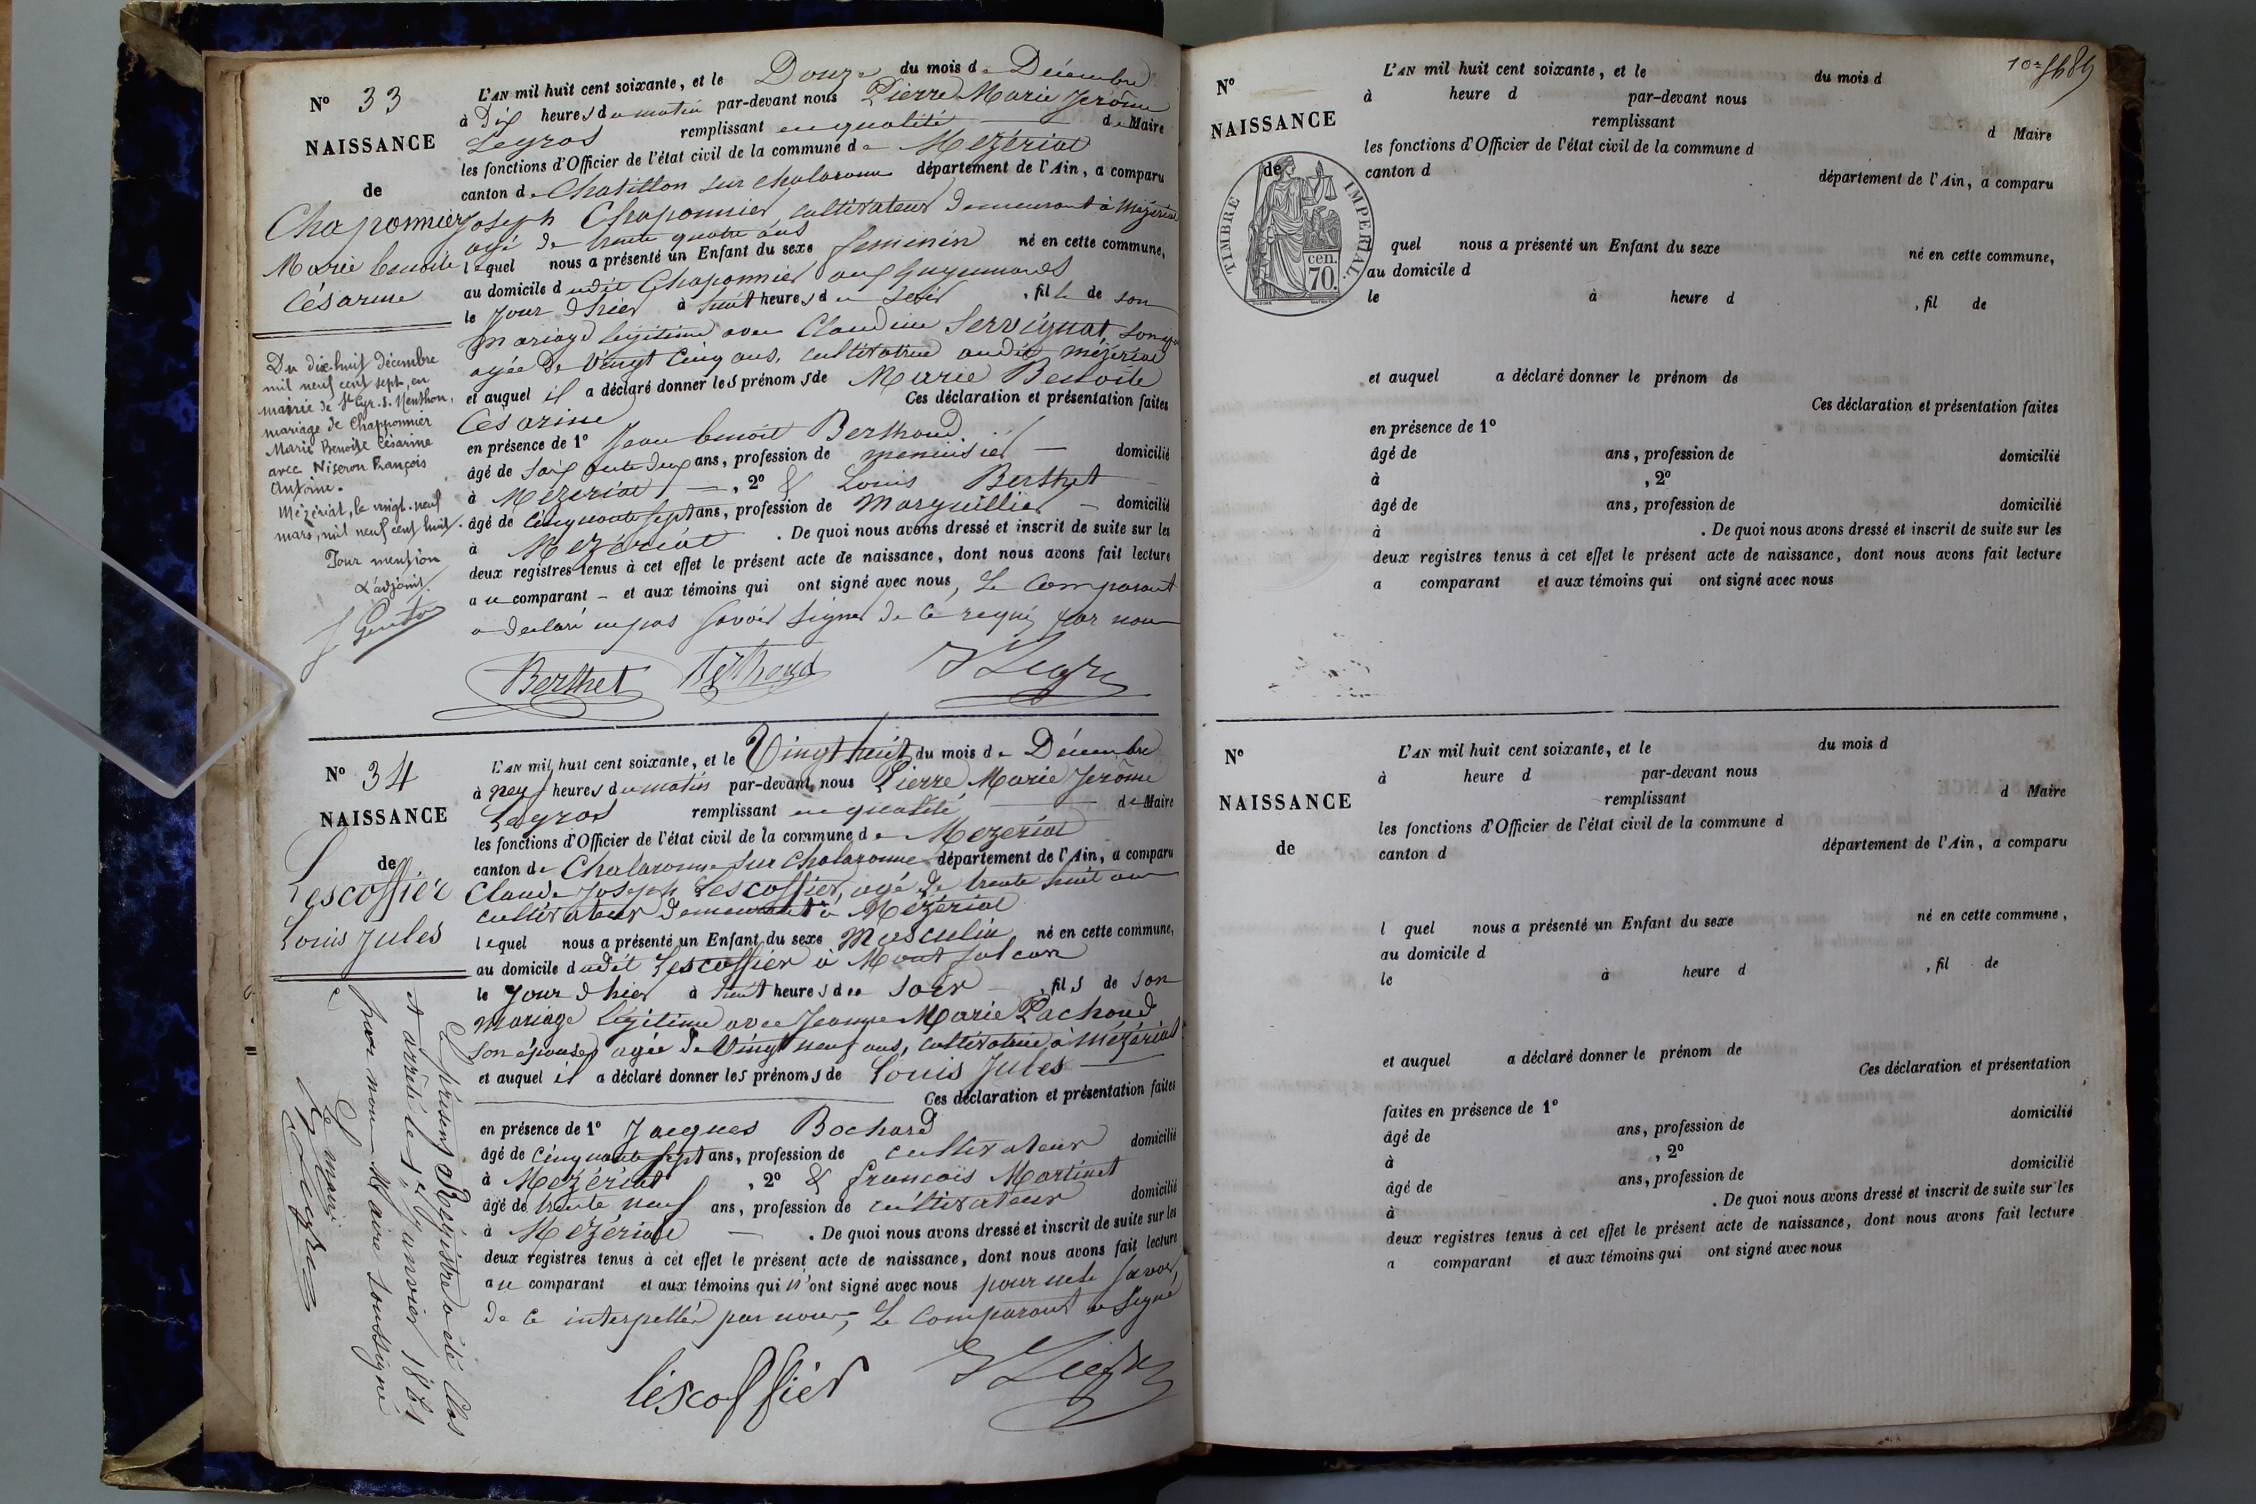 N° 33
NAISSANCE
de
Chaponnier
Marie Benoite
Césarine
L'AN mil huit cent soixante, et le Douze du mois de Décembre
à Dix heures du matin par-devant nous Pierre Marie Jérôme
Legros remplissant en qualité de Maire
les fonctions d'Officier de l'état civil de la commune de Mézériat
canton de Chatillon sur chalaronne département de l'Ain, a comparu
Joseph Chaponnier, cultivateur demeurant à Mézériat
agé de trente quatre ans
lequel nous a présenté un Enfant du sexe féminin né en cette commune,
au domicile dudit Chaponnier aux
le jour d'hier à huit heures du soir, fille de son
mariage légitime avec Claudine Servignat, son
agée de Vingt cinq ans, cultivatrice audit mézériat
et auquel il a déclaré donner les prénoms de Marie Benoite
Césarine Ces déclaration et présentation faites
en présence de 1° Jean benoit Berthoud
âgé de soixante deux ans, profession de menuisier domicilié
à Mézériat, 2° & Louis Berthet
âgé de cinquante sept ans, profession de Marguillier domicilié
à Mézériat. De quoi nous avons dressé et inscrit de suite sur les
deux registres tenus à cet effet le présent acte de naissance, dont nous avons fait lecture
au comparant et aux témoins qui ont signé avec nous, Le comparant
a déclaré ne pas savoir signer de ce requis par nous
Berthet Berthoud
Du dix-huit décembre
mil neuf cent sept, en
mairie de St Cyr. s. Menthon,
mariage de Chapponnier
Marie Benoite Césarine
avec Niseron François
Antoine.
Mézériat, le vingt-neuf
mars, mil neuf cent huit.
Pour mention
L'adjoint
N° 34
NAISSANCE
de
Lescoffier
Louis Jules
L'AN mil huit cent soixante, et le Vingt huit du mois de Décembre
à neuf heures du matin par-devant nous Pierre Marie Jérôme
Legros remplissant en qualité de Maire
les fonctions d'Officier de l'état civil de la commune de Mézériat
canton de Chalaronne sur Chalaronne département de l'Ain, a comparu
Claude Joseph Lescoffier, agé de trente huit ans
cultivateur demeurant à Mézériat
lequel nous a présenté un Enfant du sexe Masculin né en cette commune,
au domicile dudit Lescoffier à Montfalcon
le jour d'hier à huit heures du soir, fils de son
mariage légitime avec Jeanne Marie Pachoud
son épouse, agée de Vingt neuf ans, cultivatrice à Mézériat
et auquel il a déclaré donner les prénoms de Louis Jules
Ces déclaration et présentation faites
en présence de 1° Jacques Bochard
âgé de cinquante sept ans, profession de cultivateur domicilié
à Mézériat, 2° & francois Martinet
âgé de trente neuf ans, profession de cultivateur domicilié
à Mézériat. De quoi nous avons dressé et inscrit de suite sur les
deux registres tenus à cet effet le présent acte de naissance, dont nous avons fait lecture
au comparant et aux témoins qui n'ont signé avec nous pour ne le savoir,
de ce interpellés par nous, Le comparant a signé
léscoffiér
Le présent Régistre a été Clos
et arrêté le 1er Janvier 1861
par nous Maire soussigné
Le maire
10e
N°
NAISSANCE
de
TIMBRE IMPERIAL.
cen.
70.
L'AN mil huit cent soixante, et le du mois d
à heure d par-devant nous
remplissant d Maire
les fonctions d'Officier de l'état civil de la commune d
canton d département de l'Ain, a comparu
quel nous a présenté un Enfant du sexe né en cette commune,
au domicile d
le à heure d , fil de
et auquel a déclaré donner le prénom de
Ces déclaration et présentation faites
en présence de 1°
âgé de ans, profession de domicilié
à , 2°
âgé de ans, profession de domicilié
à . De quoi nous avons dressé et inscrit de suite sur les
deux registres tenus à cet effet le présent acte de naissance, dont nous avons fait lecture
a comparant et aux témoins qui ont signé avec nous
N°
NAISSANCE
de
L'AN mil huit cent soixante, et le du mois d
à heure d par-devant nous
remplissant d Maire
les fonctions d'Officier de l'état civil de la commune d
canton d département de l'Ain, a comparu
l quel nous a présenté un Enfant du sexe né en cette commune,
au domicile d
le à heure d , fil de
et auquel a déclaré donner le prénom de
Ces déclaration et présentation
faites en présence de 1°
âgé de ans, profession de domicilié
à , 2°
âgé de ans, profession de domicilié
à . De quoi nous avons dressé et inscrit de suite sur les
deux registres tenus à cet effet le présent acte de naissance, dont nous avons fait lecture
a comparant et aux témoins qui ont signé avec nous